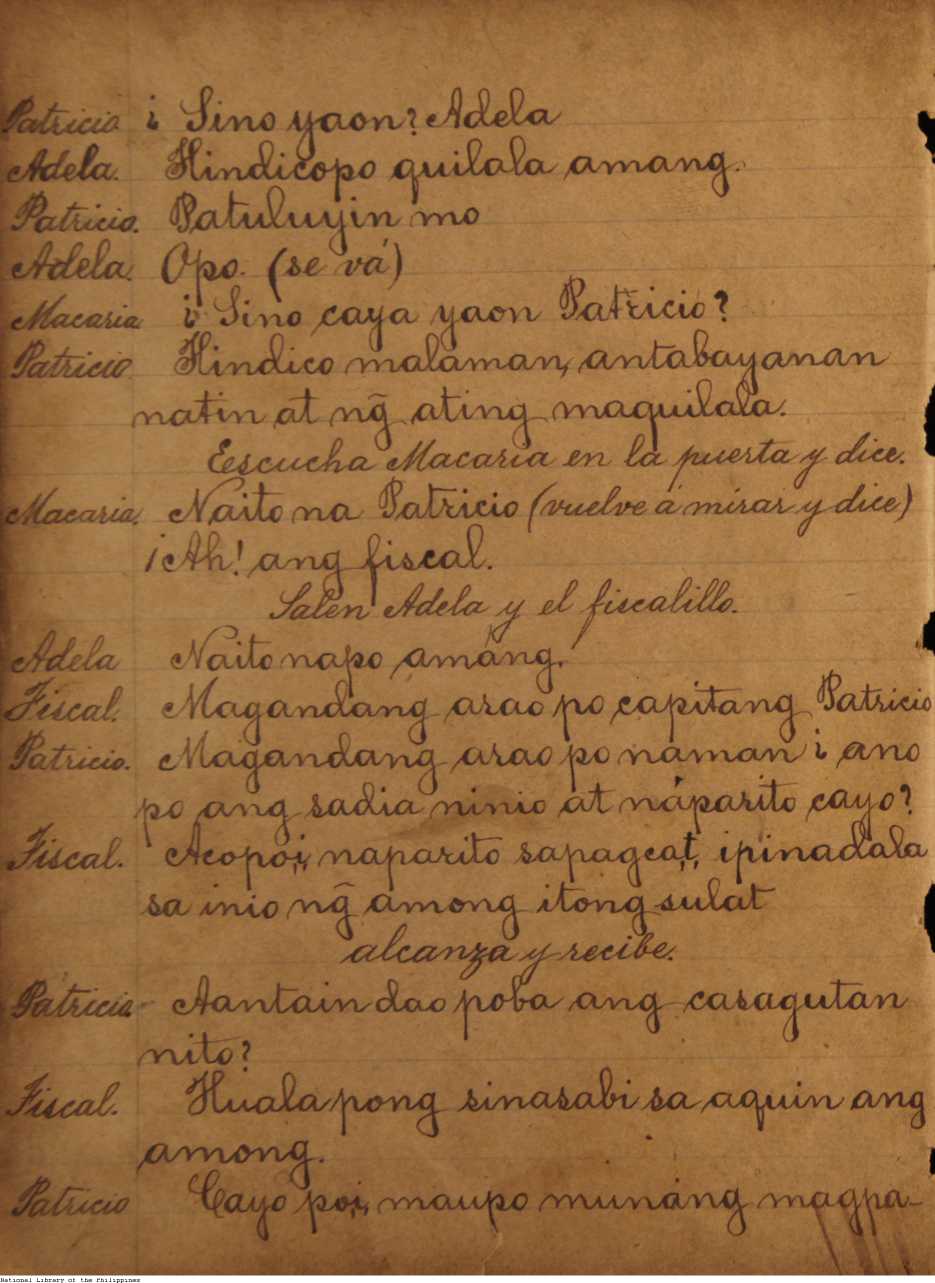 Patricio ¿ Sino yaon? Adela
Adela. Hindicopo quilala amang.
Patricio. Patuluyin mo
Adela. Opo. (se vá)
Macaria ¿ Sino caya yaon Patricio?
Patricio. Hindico malaman, antabayanan
natin at ng̃ ating maquilala.
Escucha Macaria en la puerta y dice.
Macaria. Naito na Patricio (vuelve á mirar y dice)
¡Ah! ang fiscal.
Salen Adela y el fiscalillo.
Adela Naito napo amang.
Fiscal. Magandang arao po capitang Patricio
Patricio. Magandang arao po naman ¿ ano
po ang sadia ninio at náparito cayo?
Fiscal. Acopoi, naparito sapagcat, ipinadala
sa inio ng̃ among itong sulat
alcanza y recibe.
Patricio Aantain dao poba ang casagutan
nito?
Fiscal. Huala pong sinasabi sa aquin ang
among.
Patricio Cayo poi, maupo munang magpa-
National Library of the Philippines